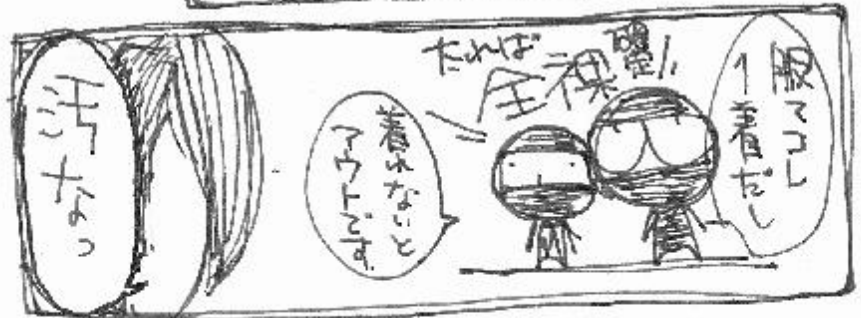 服てコレ
１着だし
たれば
全裸確!!
着れないと
アウトです。
汚なっ